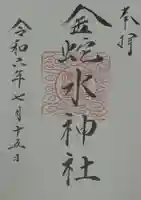 奉拝
金蛇水神社
令和六年七月十五日